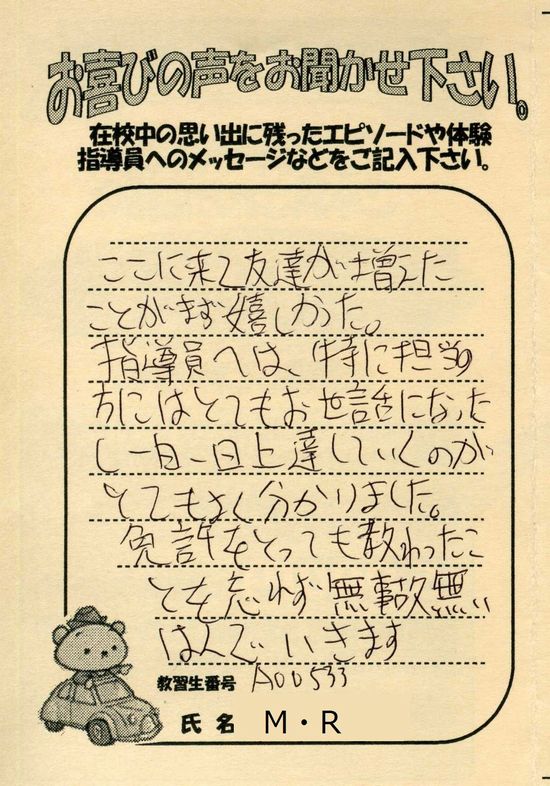 お喜びの声をお聞かせ下さい。
在校中の思い出に残ったエピソードや体験
指導員へのメッセージなどをご記入下さい。
ここに来て友達が増えた
ことがまず嬉しかった。
指導員へは、特に担当の
方にはとてもお世話になった
し一日一日上達していくのが
とてもよく分かりました。
免許をとっても教わったこ
とを忘れず無事故無い
はんでいきます
教習生番号 A00533
氏名 M・R